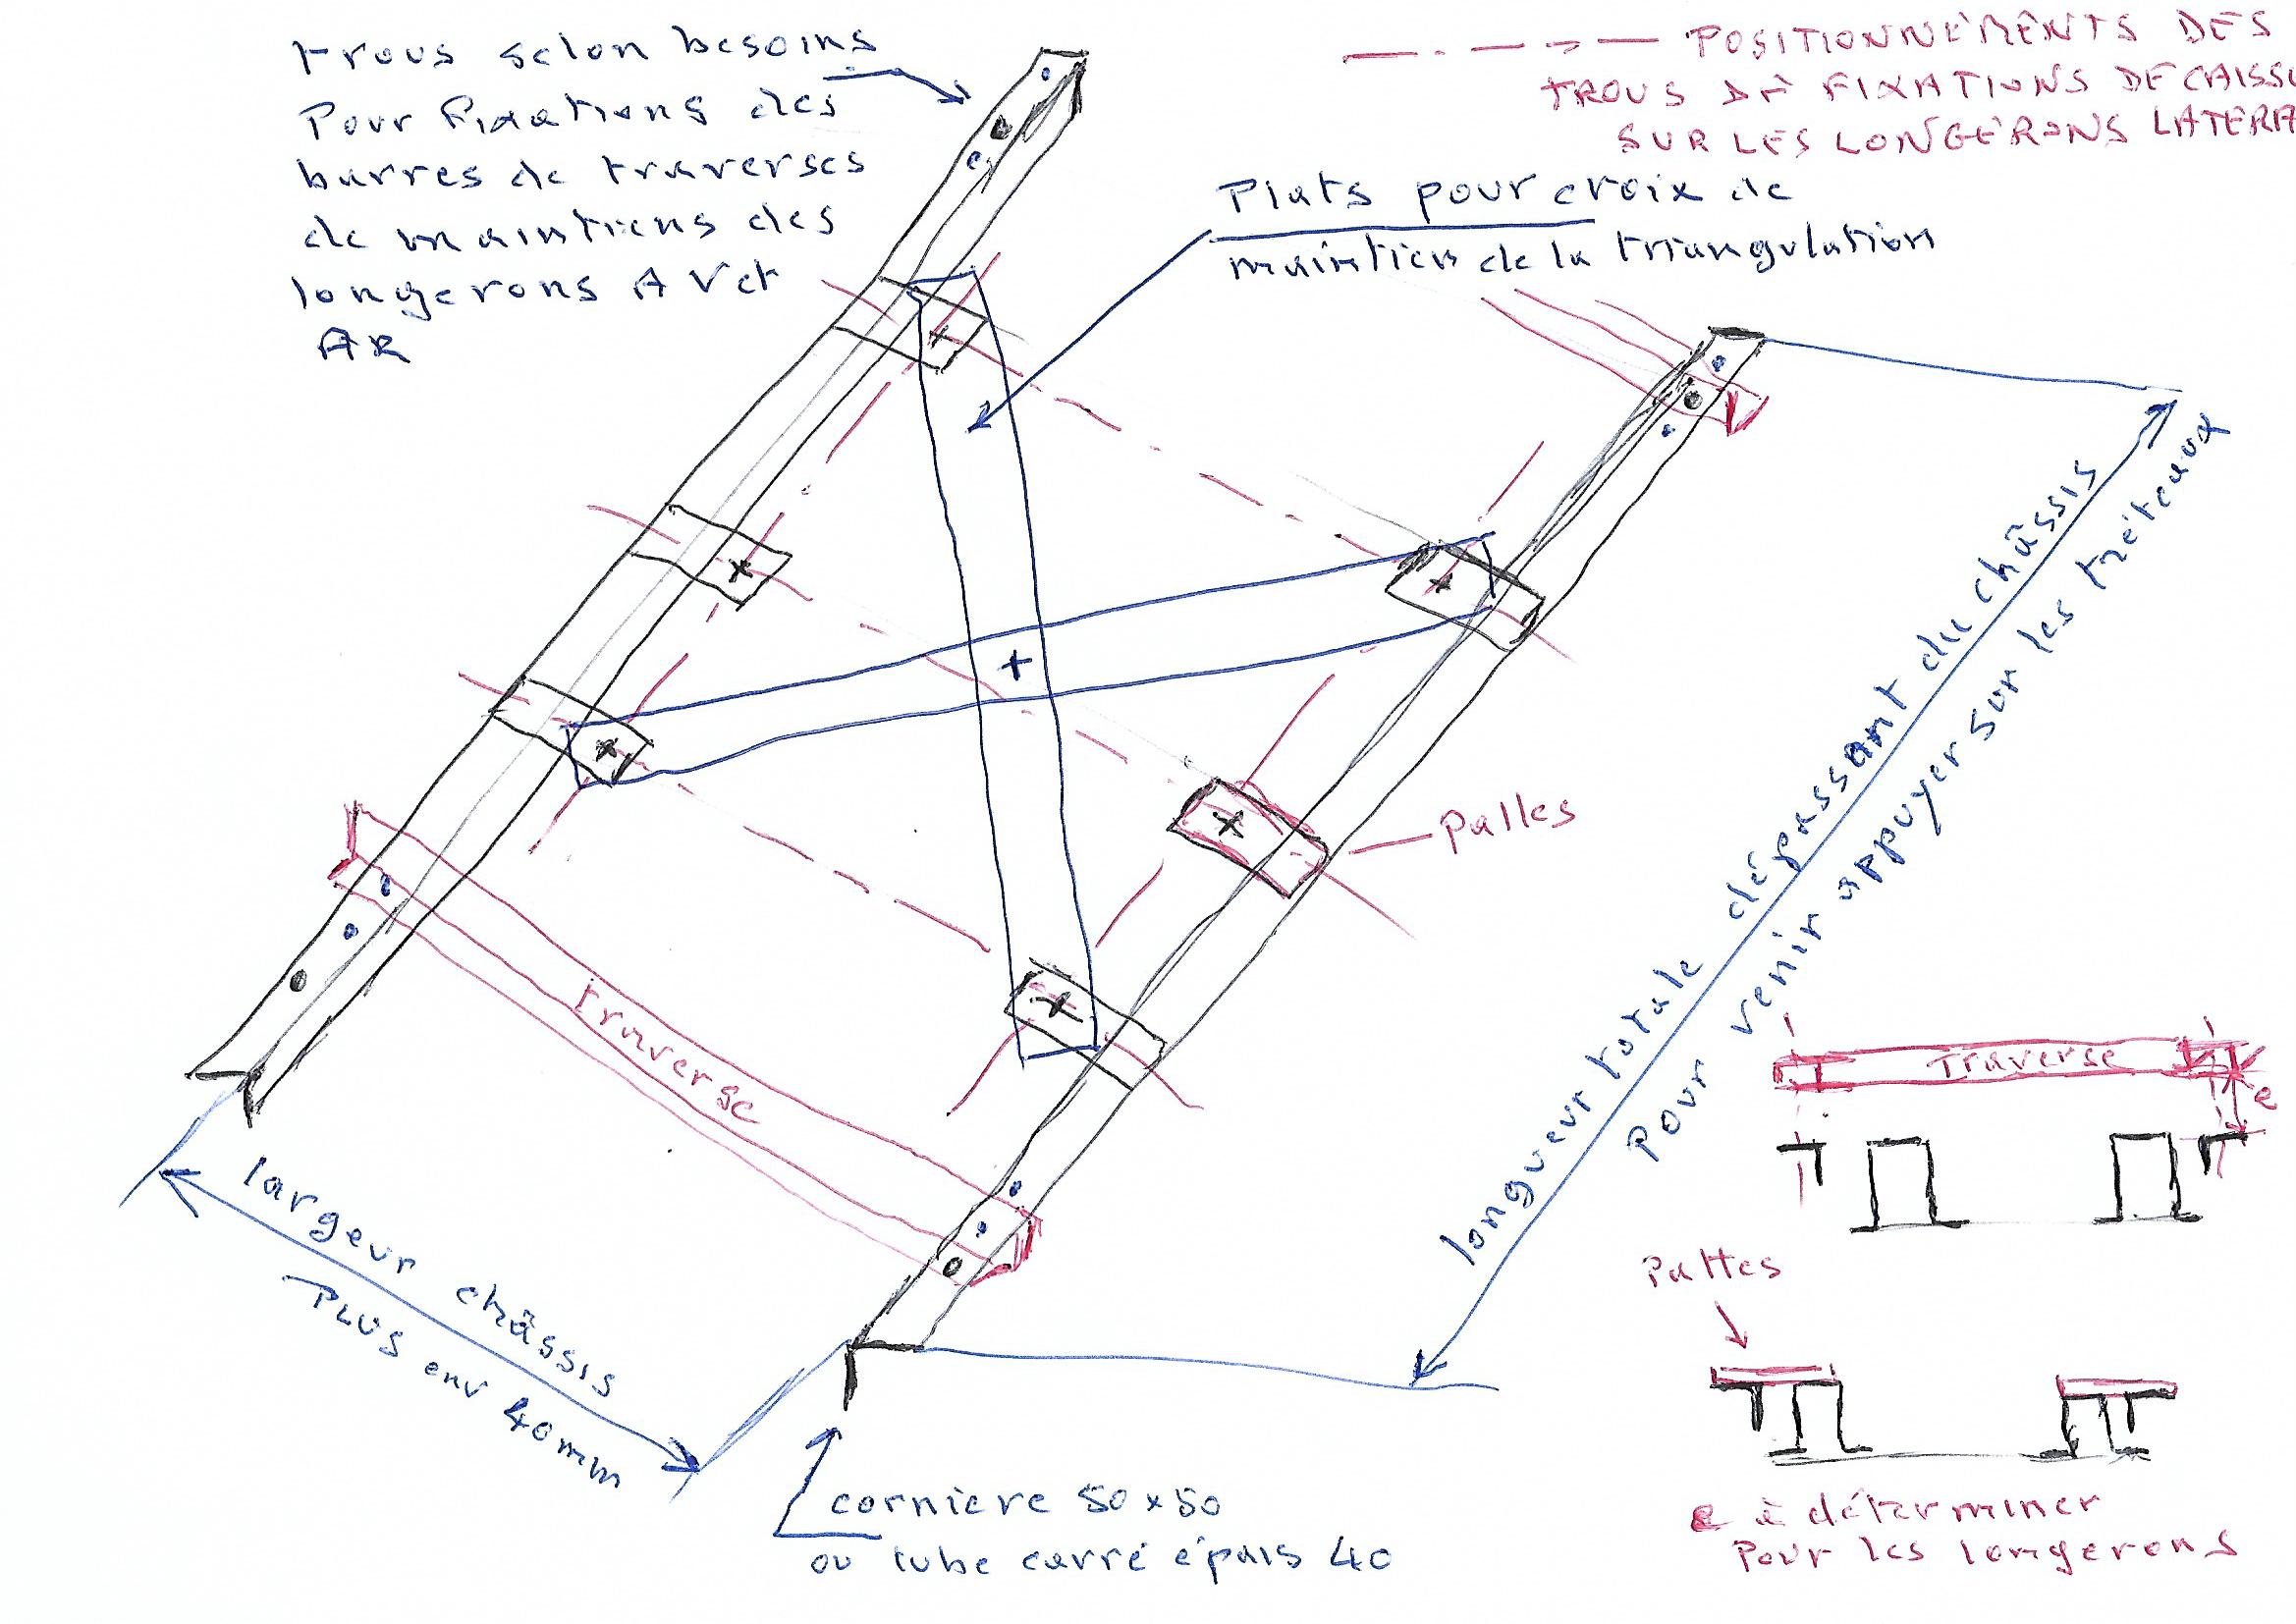 trous selon besoins
Pour fixations des
barres de traverses
de maintiens des
longerons AV et
AR
POSITIONNEMENTS DES
TROUS DE FIXATIONS DE CAISSE
SUR LES LONGERONS LATERA
Plats pour croix de
maintien de la triangulation
longueur totale dépassant du châssis
Pour venir appuyer sur les tréteaux
Palles
traverse
Traverse
e
largeur châssis
PLUS env 40mm
Pattes
corniere 50x50
ou tube carré épais 40
e à déterminer
Pour les longerons